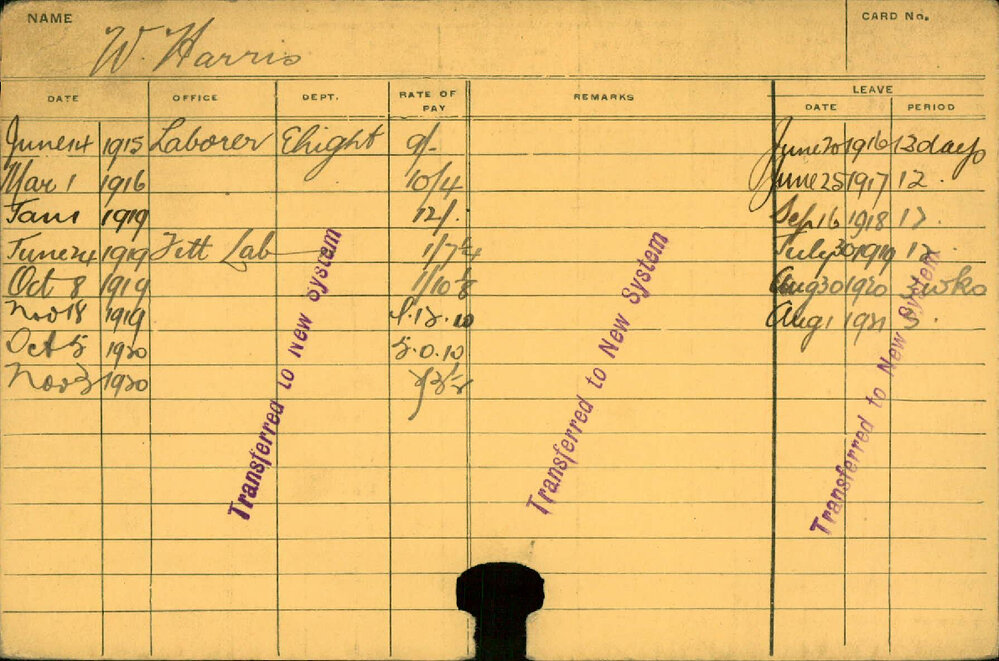 NAME
CARD No.
W. Harris
DATE OFFICE DEPT. RATE OF PAY REMARKS LEAVE
DATE PERIOD
June 14 1915 Laborer Elight 9/- June 20 1916 13 days
Mar 1 1916 10/4 June 25 1917 12
Jan 1 1919 12/- Sep 16 1918 12
June 24 1919 Fitt Lab 1/7 July 30 1919 12
Oct 8 1919 1/10 Aug 30 1920 3 wks
Nov 18 1919 12.10 Aug 1 1921 3
Oct 5 1920 5.0.10
Nov 3 1920
Transferred to New System
Transferred to New System
Transferred to New System